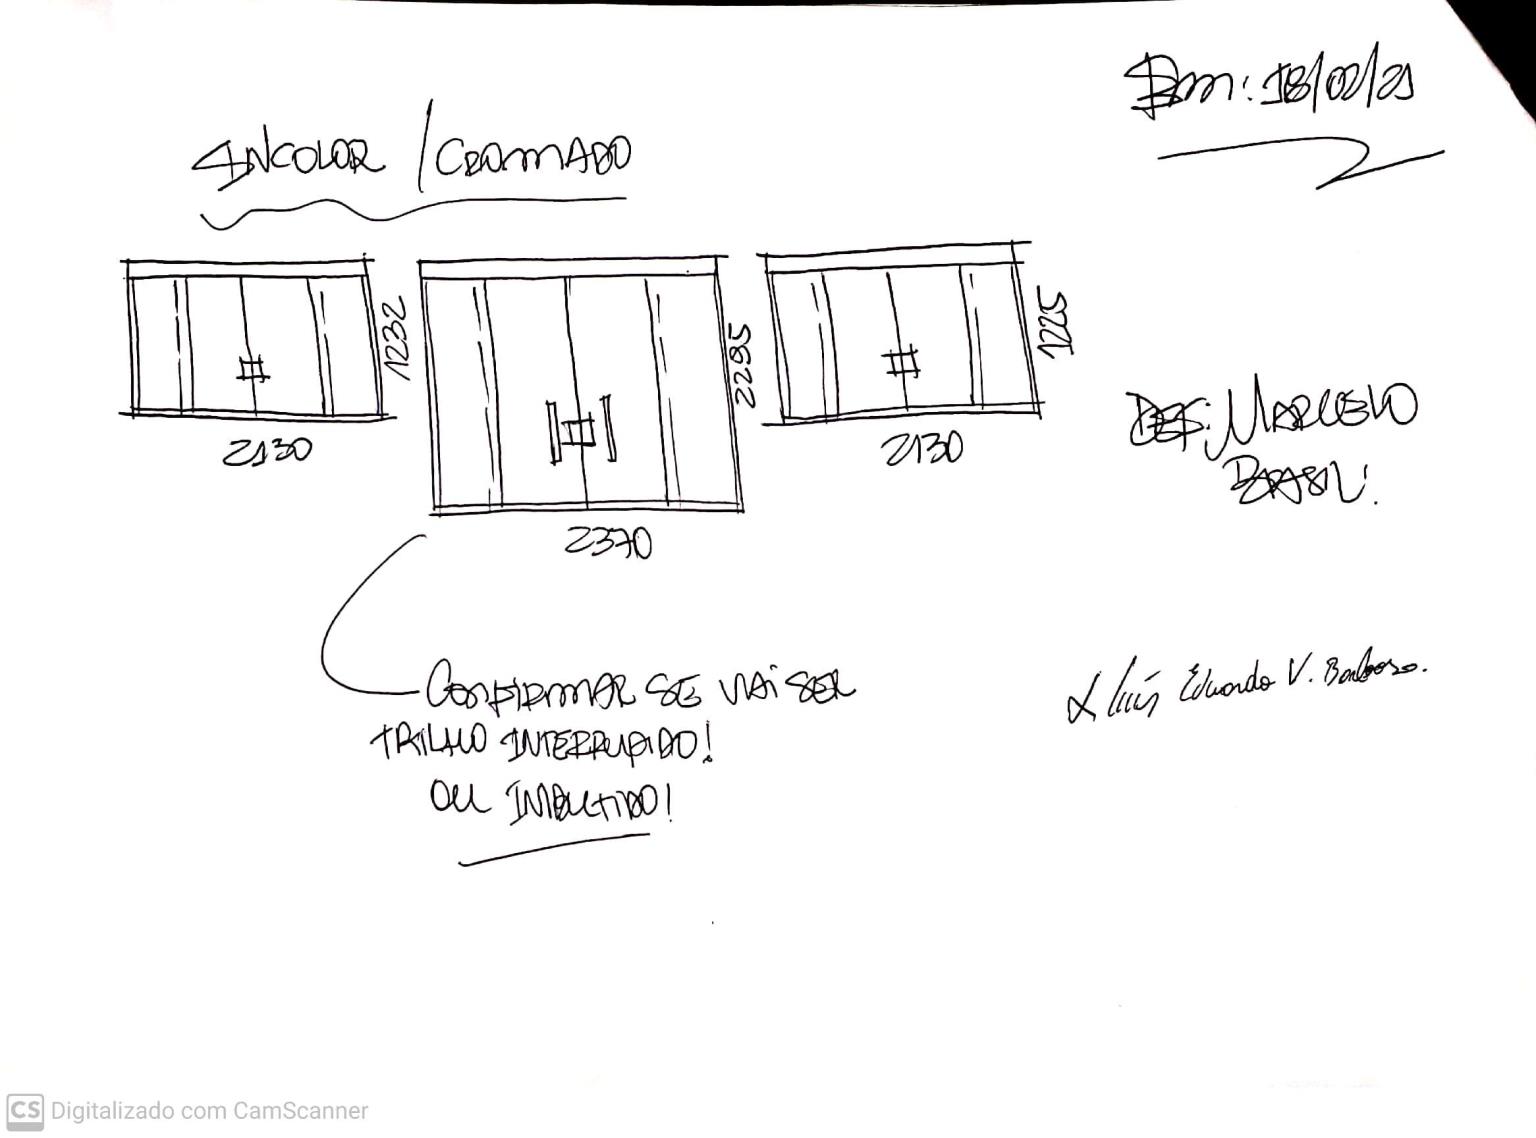 Bm: 18/02/21
INCOLOR / CROMADO
1232
2295
1225
2130
2370
2130
DES: MARCELO
BRASIL.
CONFIRMAR SE VAI SER
TRILHO INTERRUPIDO!
OU IMBUTIDO!
Luís Eduardo V. Barboso.
CS Digitalizado com CamScanner